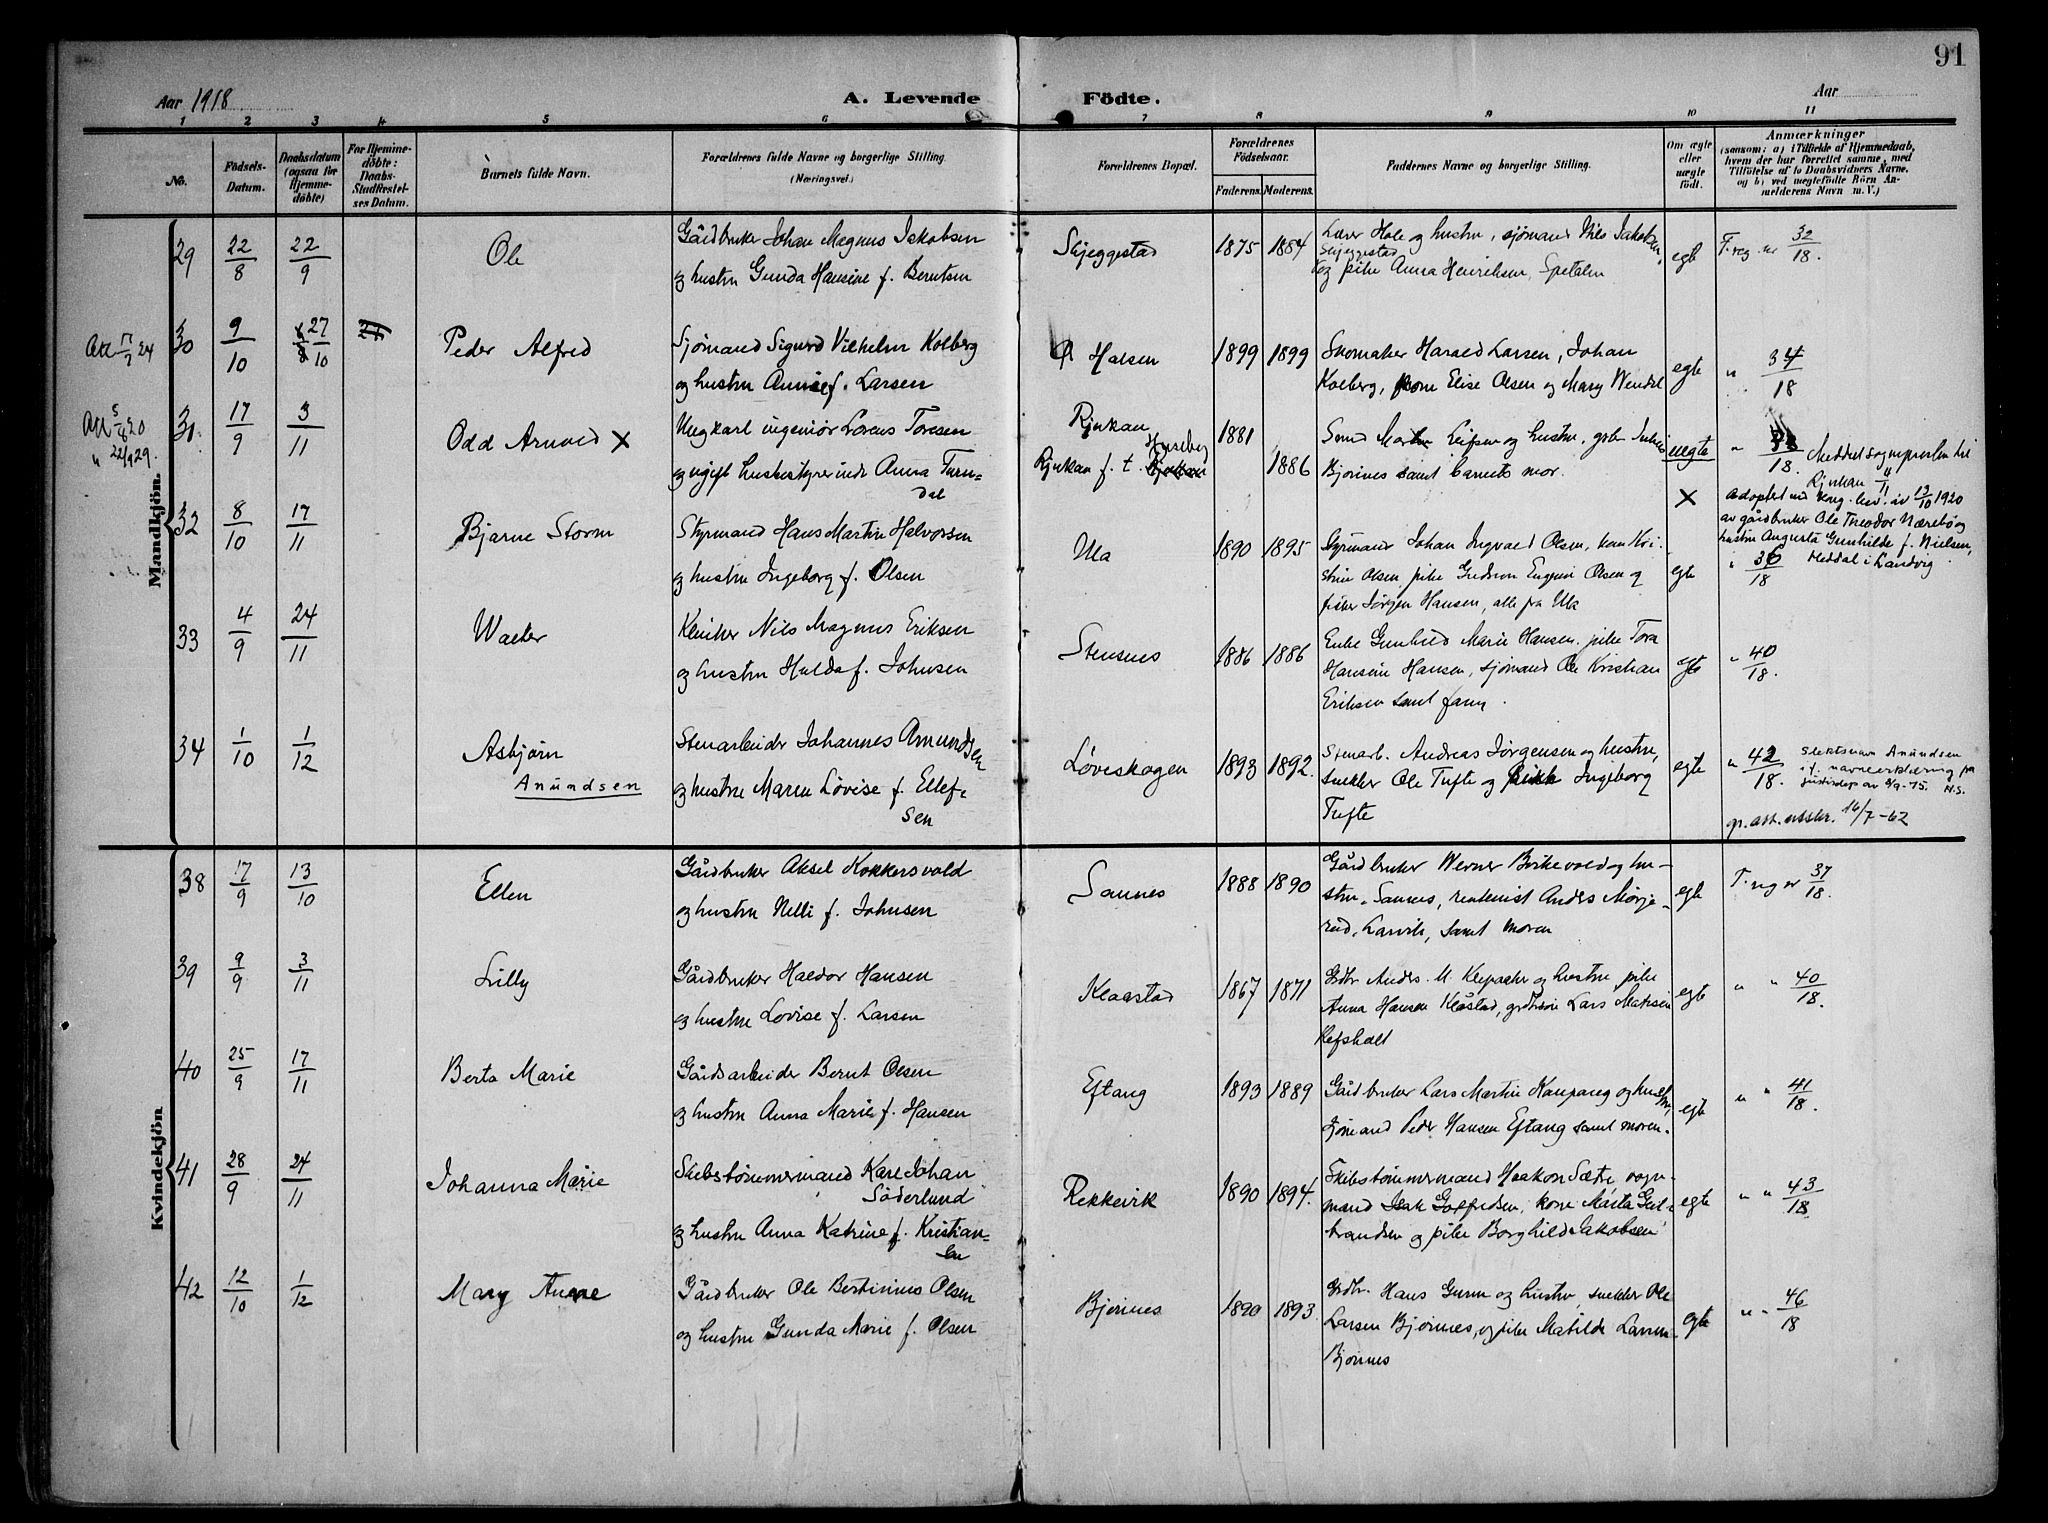 91
Aar 1918
A. Levende Födte.
Aar
1 2 3 4 5 6 7 8 9 10 11
No.
Födsels-Datum.
Daabsdatum (ogsaa for Hjemmedöbte)
For Hjemmedöbte: Daabs-Stadfæstelses Datum.
Barnets fulde Navn.
Forældrenes fulde Navne og borgerlige Stilling. (Næringsvei.)
Forældrenes Bopæl.
Forældrenes Födselsaar.
Faderens. Moderens.
Faddernes Navne og borgerlige Stilling.
Om ægte eller uægte födt.
Anmærkninger
(saasom: a) i Tilfælde af Hjemmedaab,
hvem der har forrettet samme, med
Tilföielse af to Daabsvidners Navne,
og b) ved uægtefödte Börn An-
melderens Navn m. V.)
Mandkjön.
29 22/8 22/9 Ole
Gårdbruker Johan Magnus Jakobsen
og hustru Gunda Hansine f. Berntsen
Skjeggestad 1875 1884
Lærer Hole og hustru, sjømand Nils Jakobsen,
Skjeggestad
og pike Anna Henriksen, Spetalen
egte
T. reg. nr 32/18.
30 9/10 27/10 Peder Alfred
Sjømand Sigurd Vilhelm Kolberg
og hustru Annie f. Larsen
Ø Halsen 1899 1899
Skomaker Harald Larsen, Johan
Kolberg, kone Elise Olsen og Mary Wendel
egte
" 34/18
Att 5/8 20
" 22/9 29.
31 17/9 3/11 Odd Arnold X
Ungkarl ingeniør Lorens Toresen
og ugift husbestyrerinde Anna Turn-
dal
Rjukan
Rjukan f. t. Huseby
1881 1886
Bjørnes samt barnets mor.
uegte
X
Rjukan
Adoptert ved kng. bev. av 12/10 1920
av gårdbruker Ole Theodor Nærebø og
hustru Augusta Gunhilde f. Nielsen,
Heddal i Landvig
32 8/10 17/11 Bjarne Storm
Styrmand Hans Martin Halvorsen
og hustru Ingeborg f. Olsen
Ula 1890 1895
Styrmand Johan Ingvald Olsen, kone Kri-
stine Olsen, pike Gudrun Eugenie Olsen og
fisker Jørgen Hansen, alle fra Ula
egte
" 36/18
33 4/9 24/11 Walter
Kleinker Nils Magnus Eriksen
og hustru Hulda f. Johnsen
Stensnes 1886 1886
Enke Gunhild Marie Hansen, pike Tora
Hansine Hansen, sjømand Ole Kristian
Eriksen samt faren.
egte
" 40/18.
34 1/10 1/12 Asbjørn
Anundsen
Stenarbeider Johannes Amundsen
og hustru Maren Lovise f. Ellef-
sen
Løveskogen 1893 1892.
Stenarb. Andreas Jørgensen og hustru,
snekker Ole Tufte og pike Ingeborg
Tufte
egte
" 42/18.
Slektsnavn Anundsen
i f. navneerklæring fra
Justisdep av 8/9-75. N.S.
gr. att. utskr. 16/7-62
Kvindekjön
38 17/9 13/10 Ellen
Gårdbruker Aksel Kokkersvold
og hustru Nelli f. Johnsen
Sannes 1888 1890
Gårdbruker Werner Brikevold og hu-
stru, Sannes, rentenist Anders Mörje-
rud, Larvik, samt moren
egte
T. reg nr 37/18.
39 9/9 3/11 Lilly
Gårdbruker Haldor Hansen
og hustru Lovise f. Larsen
Klaastad 1867 1871
Grdbr. Anders M. Klepaaker og hustru, pike
Anna Hansen Klåstad, grdbr. Lars Mathisen
Refsholt
egte
" " 40/18.
40 25/9 17/11 Berta Marie
Gårdsarbeider Bernt Olsen
og hustru Anna Marie f. Hansen
Eftang 1893 1889
Gårdbruker Lars Martin Kaupang og hustru,
sjømand Peder Hansen Eftang samt moren.
egte
" " 41/18.
41 28/9 24/11 Johanna Marie
Skibstømmermand Karl Johan
Söderlund
og hustru Anna Katrine f. Kristian-
sen
Rekkevik 1890 1894.
Skibstømmermand Haakon Sæte, vogn-
mand Isak Gotfredsen, kone Marta Gul-
brandsen og pike Borghild Jakobsen
egte
" " 43/18
42 12/10 1/12 Mary Anne
Gårdbruker Ole Bertinius Olsen
og hustru Gunda Marie f. Olsen
Bjørnes 1890 1893.
Grdbr. Hans Gurm og hustru, snekker Ole
Larsen Bjørnes, og pike Matilde Larsen
Bjørnes
egte
" " 46/18